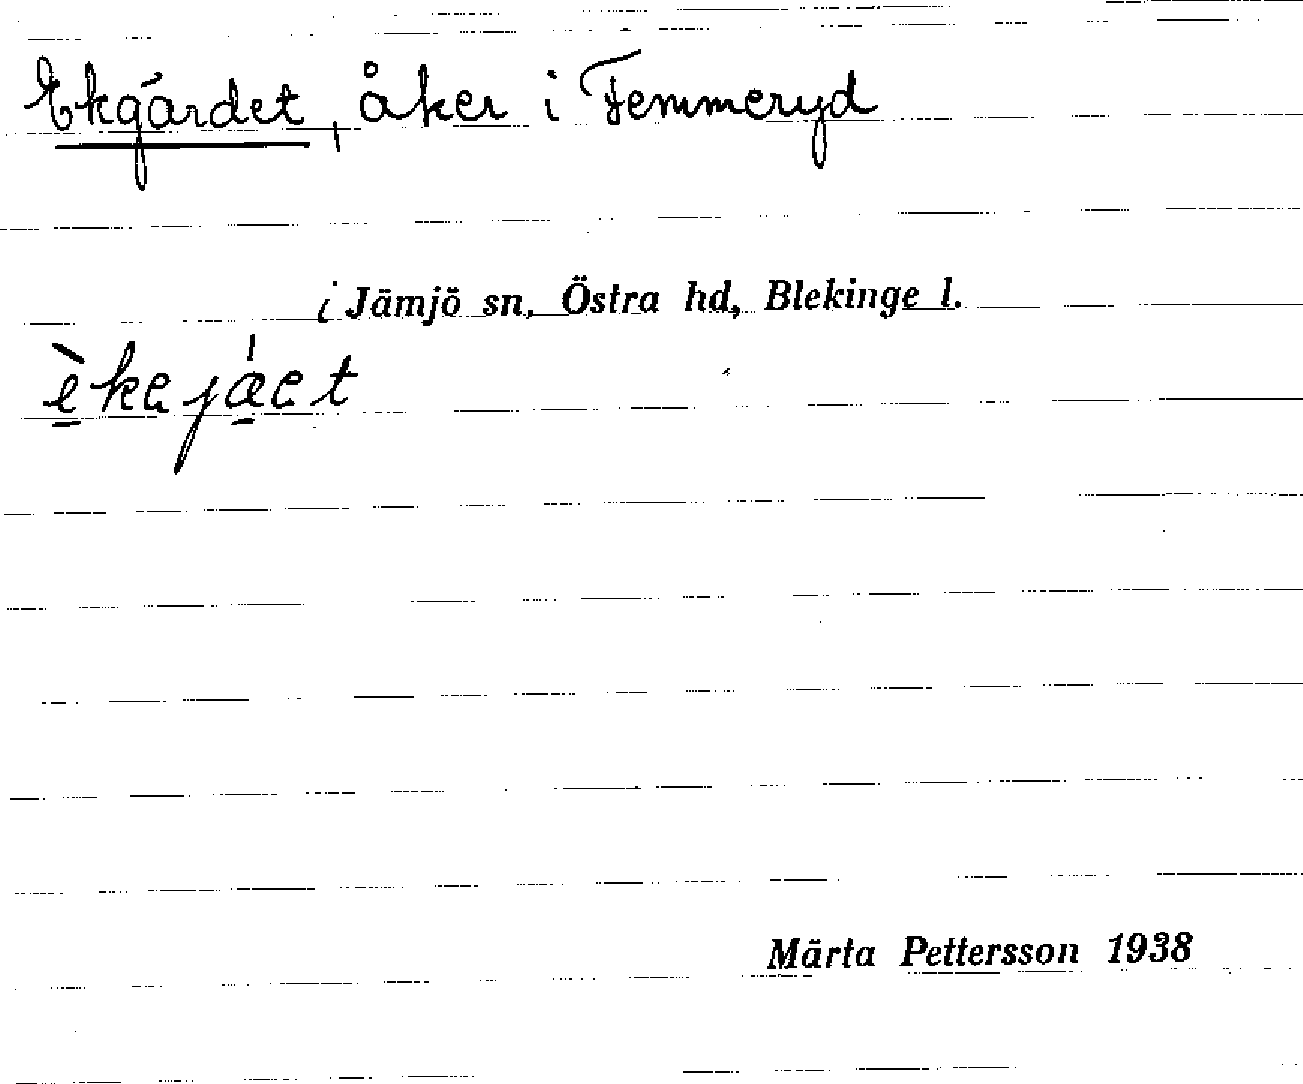 Ekgärdet, åker i Femmeryd
i Jämjö sn, Östra hd, Blekinge l.
èkejæet
Märta Pettersson 1938